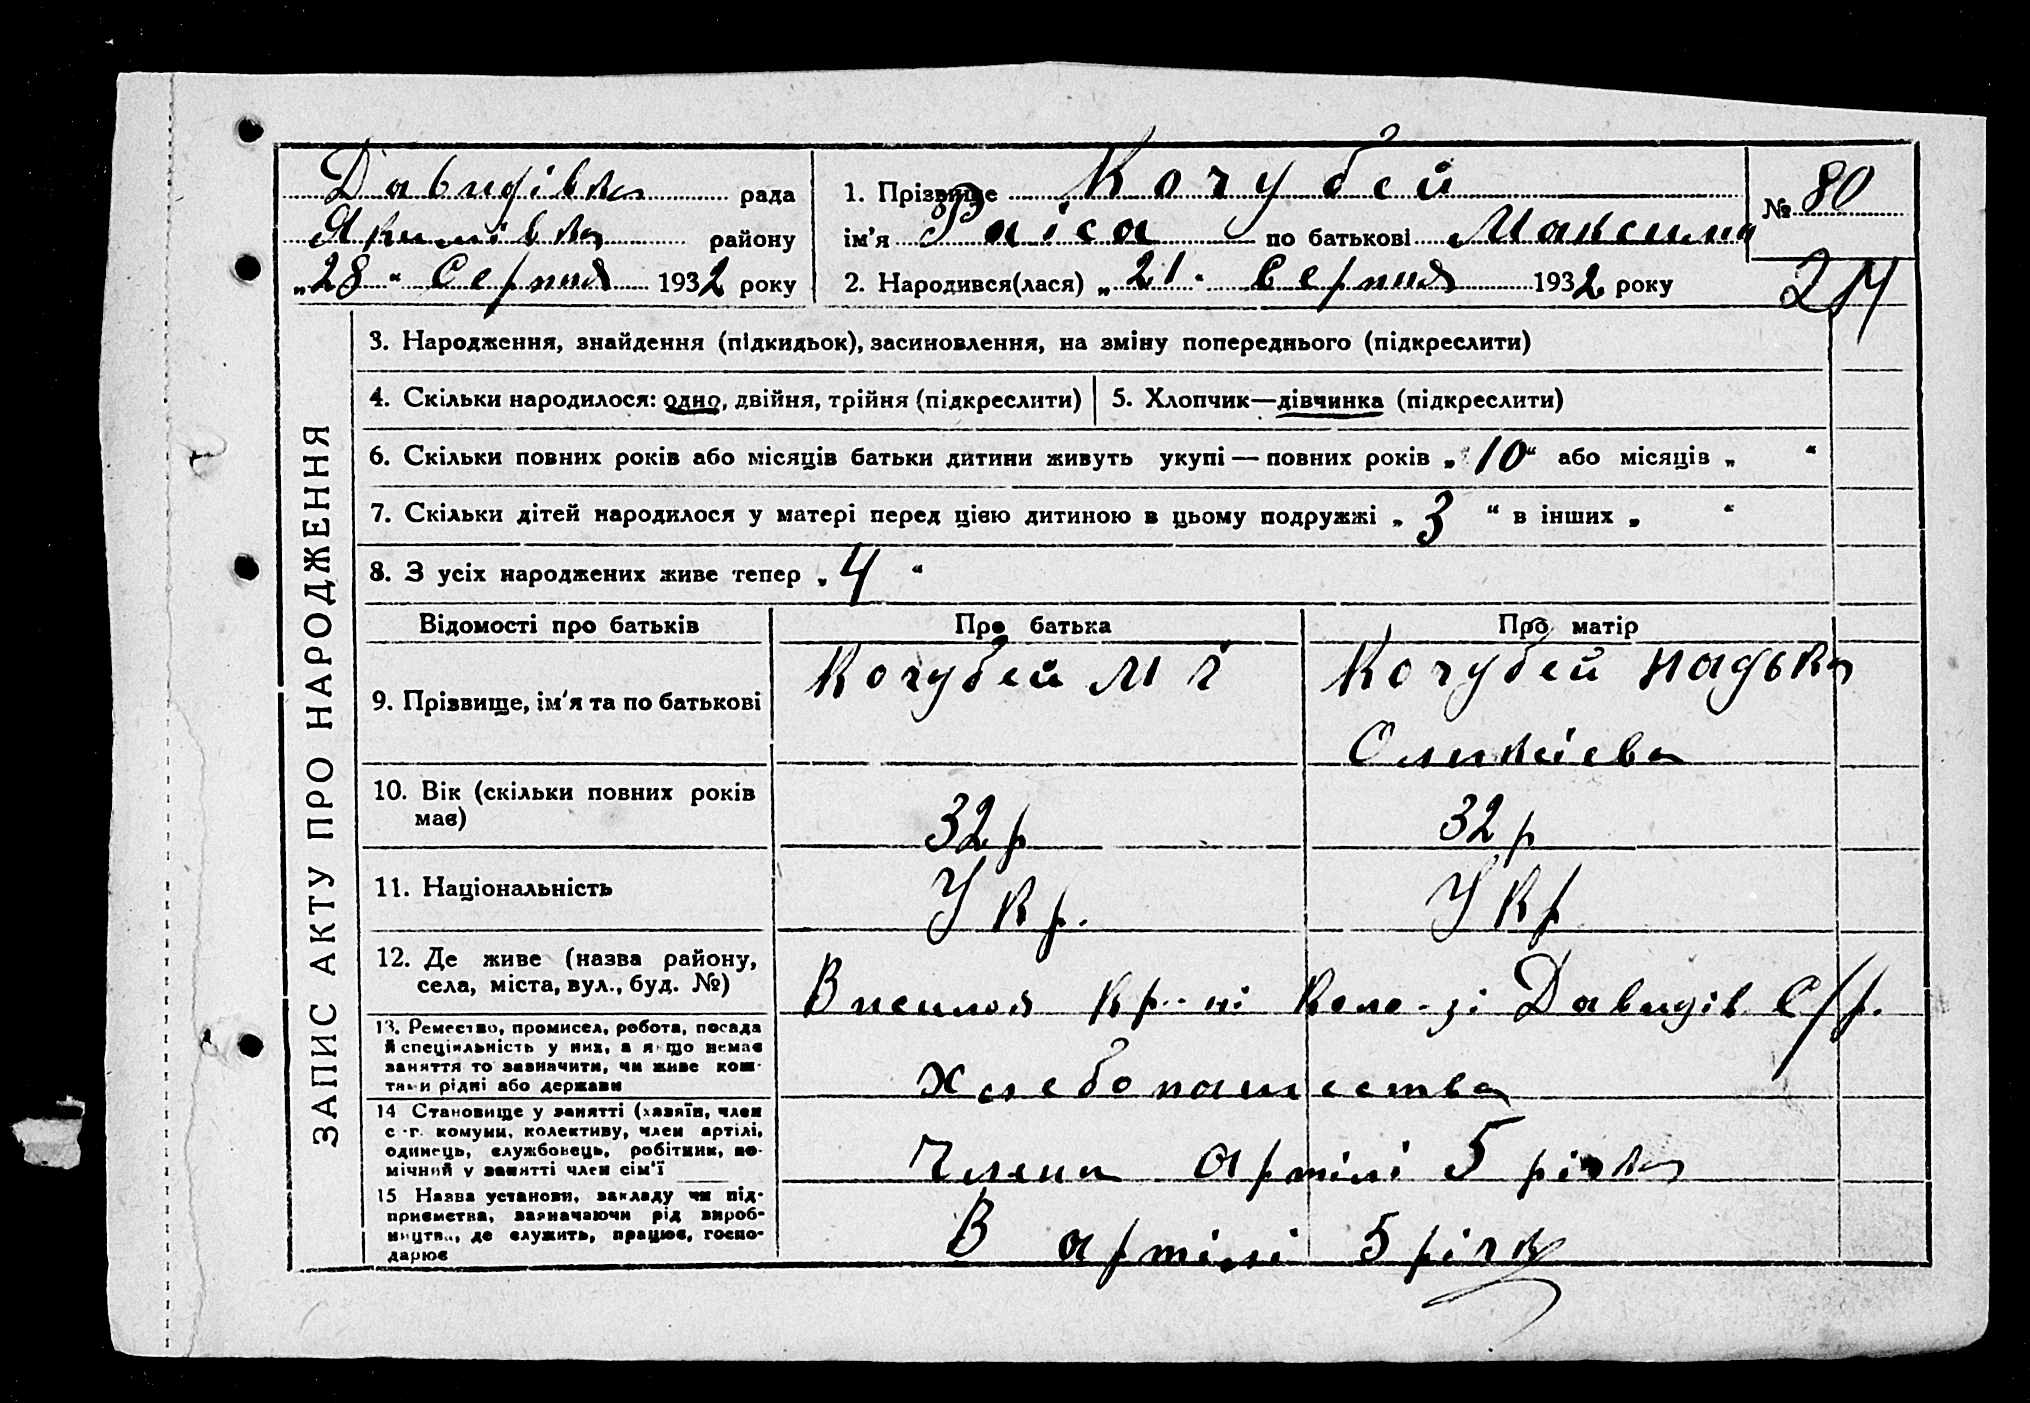 Давидівка рада
Якимівка району
„28“ Серпня 1932 року
1. Прізвище Кочубей
ім’я Раїса по батькові Максимив
2. Народився(лася) „21“ Серпня 1932 року
№ 80
24
ЗАПИС АКТУ ПРО НАРОДЖЕННЯ
3. Народження, знайдення (підкидьок), засиновлення, на зміну попереднього (підкреслити)
4. Скільки народилося: одно, двійня, трійня (підкреслити)
5. Хлопчик—дівчинка (підкреслити)
6. Скільки повних років або місяців батьки дитини живуть укупі — повних років „10“ або місяців „ “
7. Скільки дітей народилося у матері перед цією дитиною в цьому подружжі „3“ в інших „ “
8. З усіх народжених живе тепер „4“
Відомості про батьків
Про батька
Про матір
9. Прізвище, ім’я та по батькові
Кочубей М
Кочубей Надька
10. Вік (скільки повних років
має)
32 р
32 р
11. Національність
Укр.
Укр
12. Де живе (назва району,
села, міста, вул., буд. №)
Давидів С/р.
13. Ремество, промисел, робота, посада
й спеціяльність у них, а якщо немає
заняття то зазначити, чи живе кош-
тами рідні або держави
Хлебопашества
14 Становище у занятті (хазяїн, член
с.-г. комуни, колективу, член артілі,
одинець, службовець, робітник, по-
мічний у занятті член сім’ї
Члена артілі 5 річка
15 Назва установи, закладу чи під-
приємства, зазначаючи рід вироб-
ництва, де служить, працює, госпо-
дарює
В артілі 5 річк